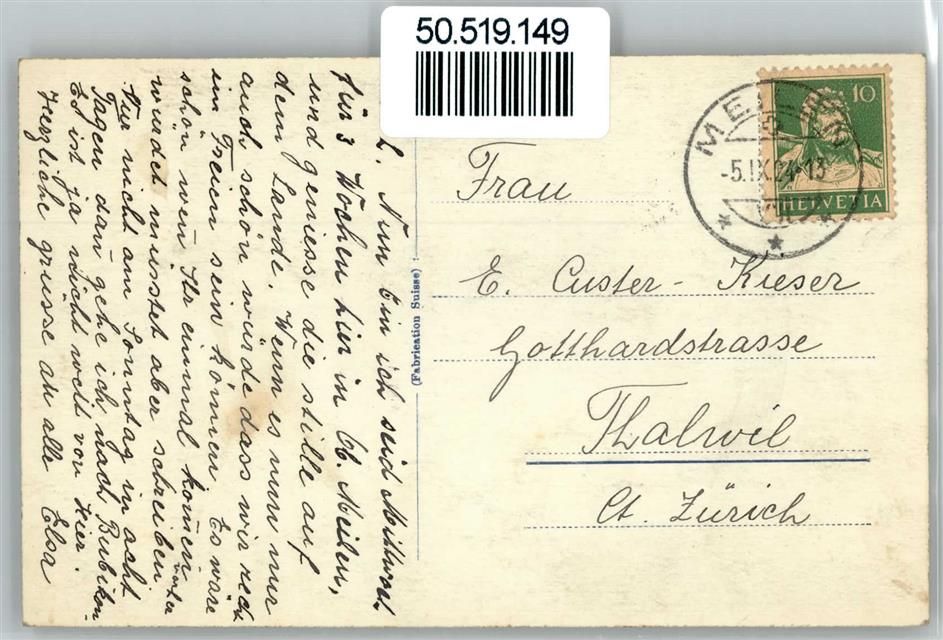 50.519.149
L. Nun bin ich seid Mittwoch
für 3 Wochen hier in Ob. Meilen,
und geniesse die stille auf
dem Lande. Wenn es nun nur
auch schön würde dass wir recht
im Freien sein können. Es wäre
schön wenn Ihr einmal kom̄en
würdet müsstet aber schreiben
Nur nicht am Sonntag in acht
Tagen dan̄ gehe ich nach Bubikon
Es ist ja nicht weit von hier.
Herzliche grüsse an alle Elsa
(Fabrication Suisse)
Frau
E. Custer-Kieser
Gotthardstrasse
Thalwil
Ct. Zürich
MEILEN
-5.IX.24-13
10
HELVETIA